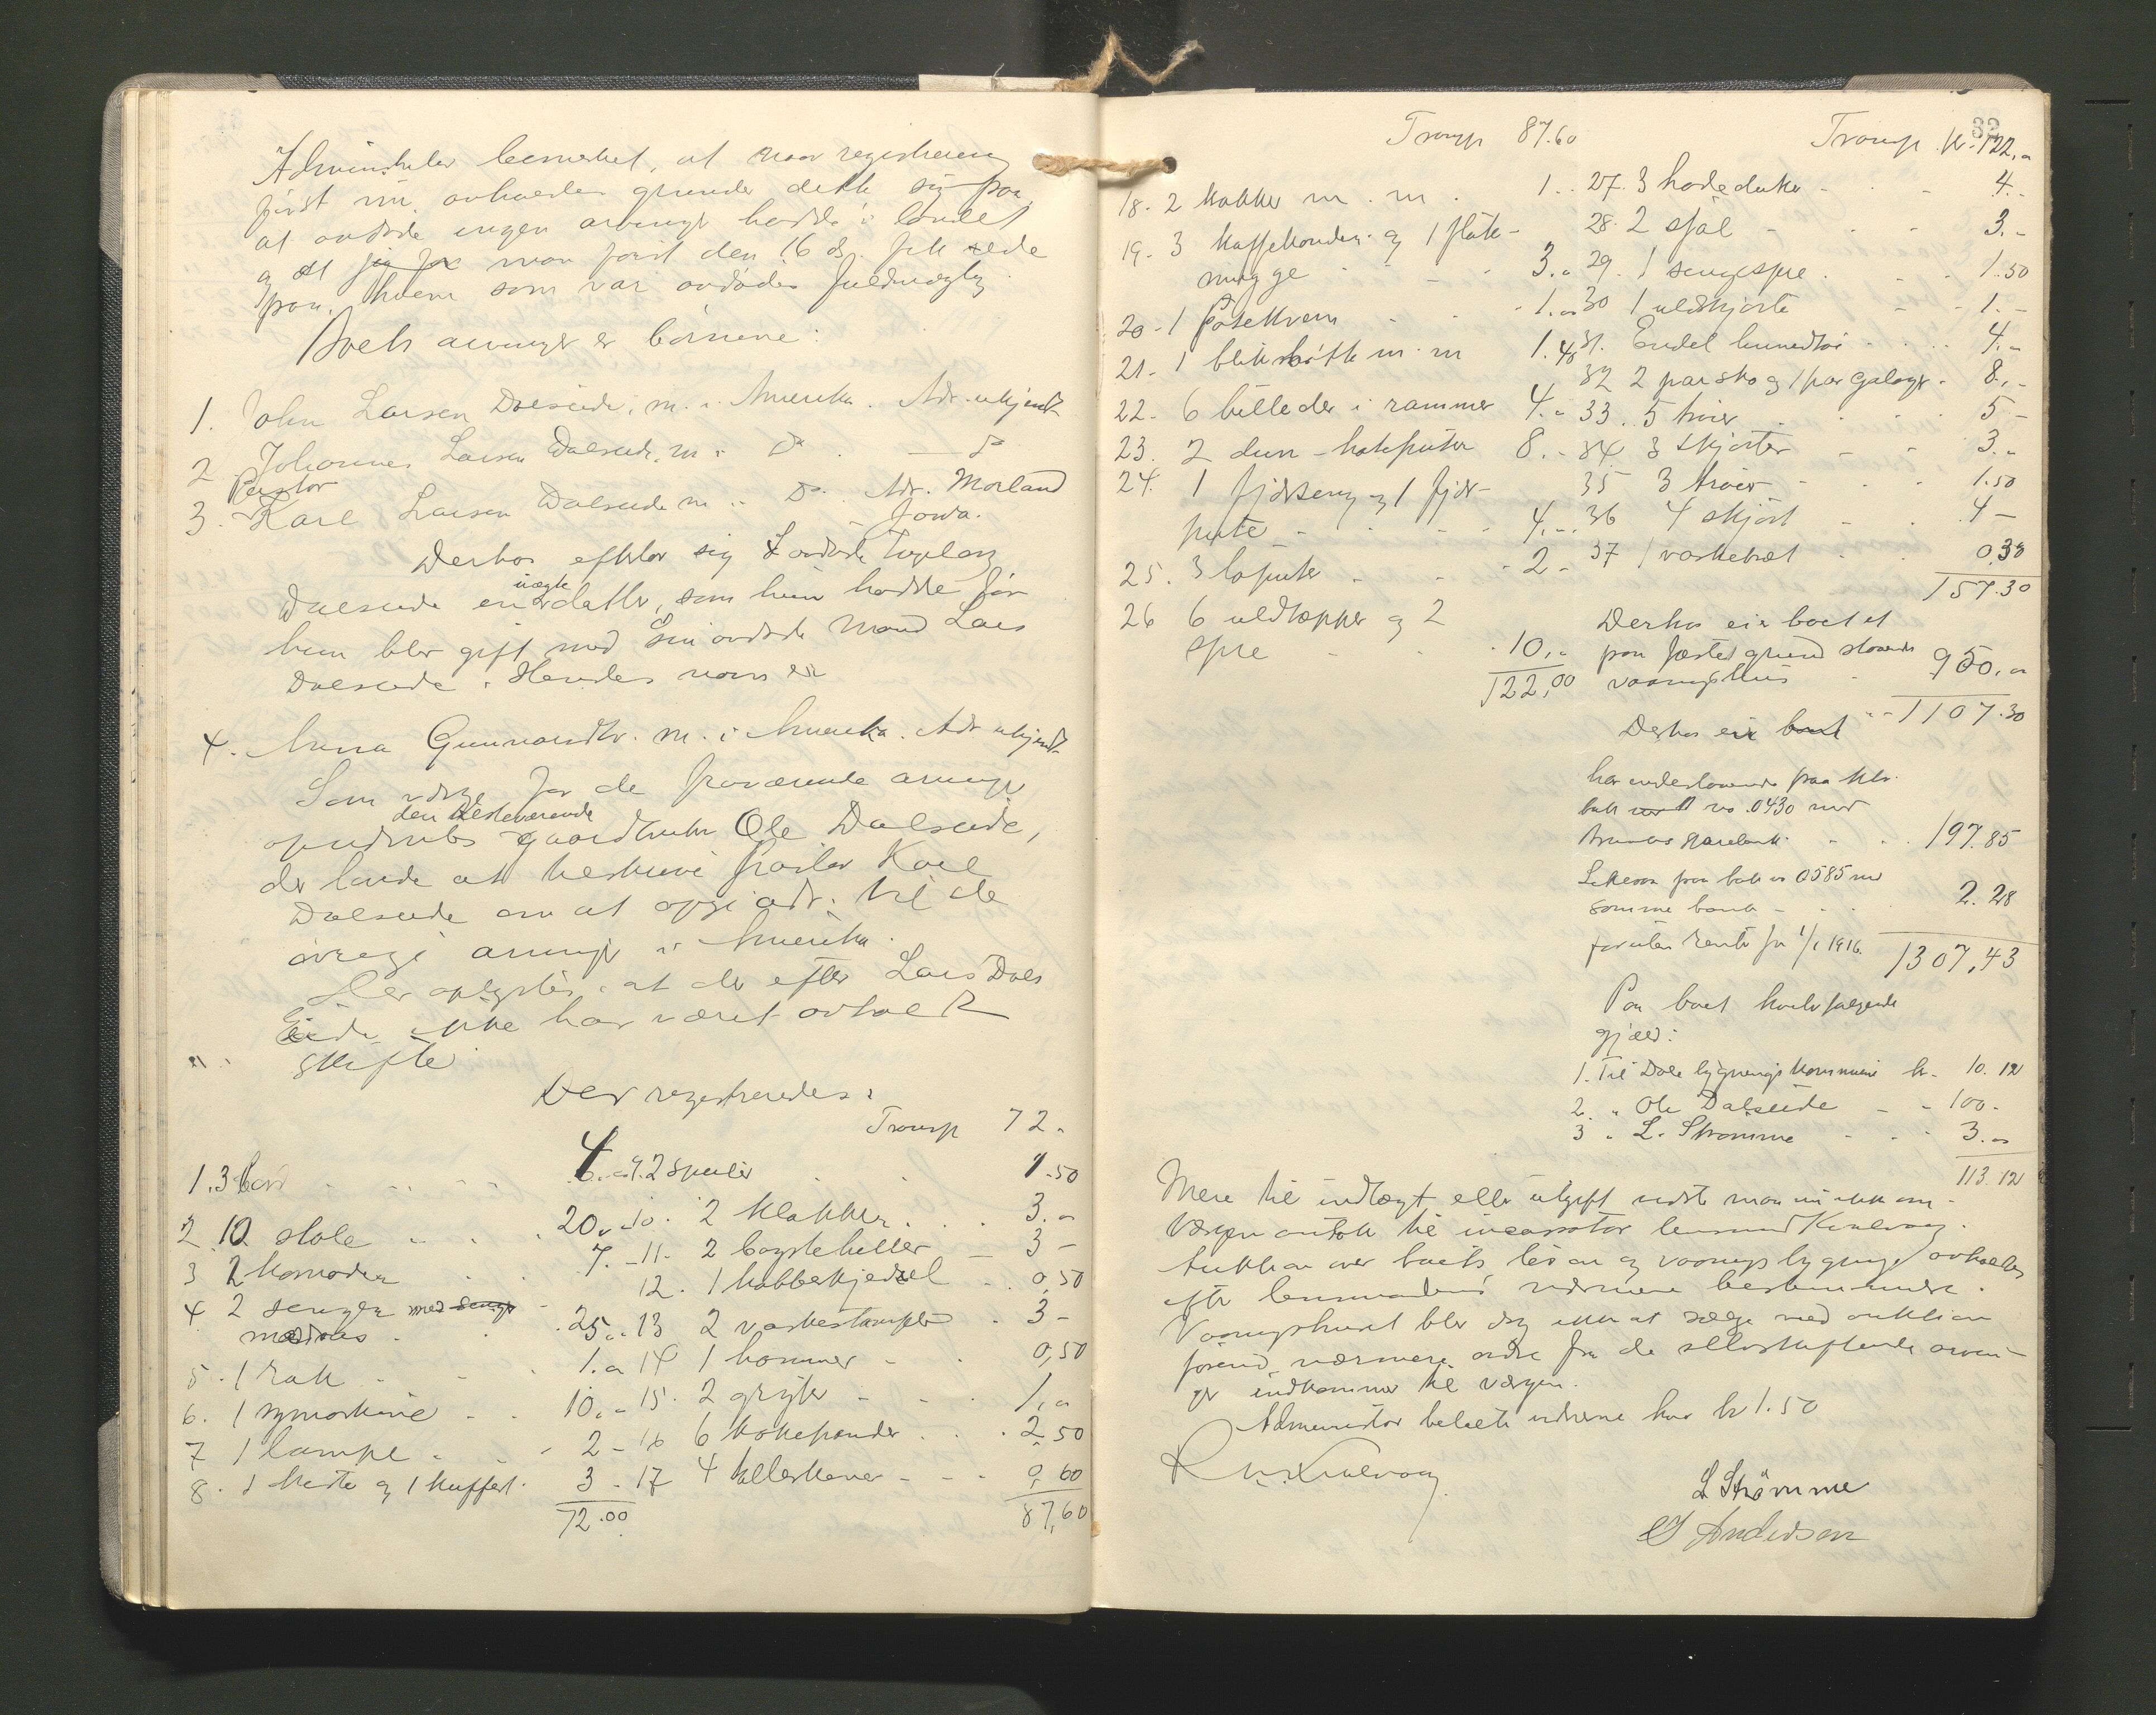 Administrator bemerket, at naar registrering
først nu avholdes grunder dette sig paa,
at avdøde ingen arvinger hadde i landet
og at jeg før man først den 16 ds. fik rede
paa, hvem som var avdødes fuldmægtig.
Boets arvinger er børnene:
1. John Larsen Dalseide, m. i Amerika. Adr. ukjendt
2. Johannes Larsen Dalseide, m. i Do. — Do
Pastor
3. Karl Larsen Dalseide m. i Do. Adr. Morland
Jowa.
Derhos efterlot sig avdøde
Dalseide en uægte datter, som hun hadde før
hun blev gift med sin avdøde mand Lars
Dalseide. Hendes navn er
4. Anna Gunnarsdtr. m. i Amerika. Adr ukjendt
Som værge for de fraværende arvinger
opnævntes den tilstedeværende gaardbruker Ole Dalseide,
der lovde at tilskrive Pastor Karl
Dalseide om at opgi adr. til de
øvrige arvinger i Amerika.
Der oplystes, at der efter Lars Dals
Eide ikke har været avholdt
skifte.
Der registreredes:
Transp 72.-
1. 3 bord 4.- 9. 2 speiler 1.50
2. 10 stole 20.- 10. 2 klokker 3.-
3 2 komoder 7.- 11. 2 boystehiller 3-
12. 1 kobberkjedel 0,50
4 2 senger med senge
madras 25.- 13 2 vaskestamper 3-
5. 1 rok 1.- 14 1 hammer 0,50
6. 1 symaskine 10.- 15. 2 gryter 1,-
7 1 lampe 2- 16 6 kokepander 2,50
8. 1 kiste og 1 kuffert 3- 17 4 tallerkener 0,60
72.00 87,60
32
Transp 87.60 Transp kr. 122,-
18. 2 kakker m. m. 1.- 27. 3 hodeduker 4.-
19. 3 kaffekander og 1 fløte- 28. 2 sjal 3.-
mugge 3.- 29. 1 sengespre 1.50
20. 1 potetkvern 1.- 30 1 uldskjorte 1.-
21. 1 blikbøtte m. m 1.40 31. Endel linnedtøi 4.-
32 2 par sko og 1 par galoger 8,-
22. 6 billeder i rammer 4.- 33. 5 trøier 5-
23. 2 dun-hodeputer 8.- 34 3 skjorter 3.-
24. 1 fjærseng og 1 fjær- 35 3 trøier 1.50
pute 4.- 36 4 skjørt 4-
25. 3 løputer 2- 37 1 vaskebræt 0,30
157.30
26 6 uldtæpper og 2
spre 10,-
122,00
Derhos eier boet et
paa fæstet grund staaende
vaaningshus 950,-
1107.30
Derhos eier boet
har indestaaende paa ktr.
bok no. 0430 med
Sparebank 197.85
Likesaa paa bok no 0585 med
samme bank 2.28
foruten renter fra 1/1 1916. 1307,43
Paa boet hviler følgende
gjæld:
1. Til Dale bygnings kommune kr. 10.12
2. " Ole Dalseide 100.-
3 " L. Strømme 3.-
113.12
Mere til indtægt eller utgift vidste man nu ikke om.
Værgen antok til incassator lensmand Kvalvaag.
Auktion over boets løsøre og vaaningsbygning avholdes
efter lensmandens nærmere bestemmelse.
Vaaningshuset blev dog ikke at sælge ved auktion
førend nærmere ordre fra de selvskiftende arvin-
ger indkommer til værgen.
Administrator betalte vidnerne hver kr 1.50
Kvalvaag
L Strømme
Andersen